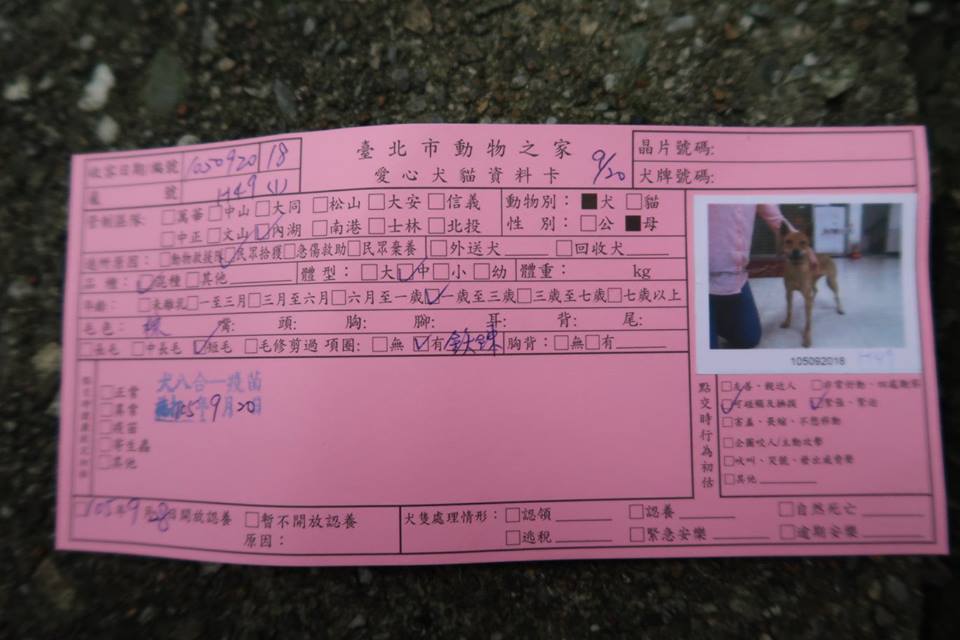 臺北市動物之家
愛心犬貓資料卡
9/20
晶片號碼:
犬牌號碼:
收容日期/編號 1050920 18
號 H49
管制區隊: □萬華□中山□大同□松山□大安□信義
□中正□文山☑內湖□南港□士林□北投
動物別:■犬□貓
性別:□公■母
送所原因:□動物救援隊☑民眾拾獲□急傷救助□民眾棄養□外送犬 □回收犬
品種:☑混種□其他 體型:□大☑中□小□幼 體重: kg
年齡:□未離乳□一至三月□三月至六月□六月至一歲☑一歲至三歲□三歲至七歲□七歲以上
毛色: 嘴: 頭: 胸: 腳: 耳: 背: 尾:
□長毛□中長毛☑短毛□毛修剪過 項圈:□無☑有 鐵鍊 胸背:□無□有
□正常
□異常
□疫苗
□寄生蟲
□其他
犬八合一疫苗
105年9月20日
105年9月28日開放認養 □暫不開放認養
原因:
犬隻處理情形:□認領 □認養 □自然死亡
□逃脫 □緊急安樂 □逾期安樂
105092018 H49
點交時行為初估
□友善、親近人
☑可碰觸及抽提 ☑緊張、緊迫
□害羞、畏縮、不想移動
□企圖咬人/主動攻擊
□吠叫、哭號、發出威脅聲
□其他